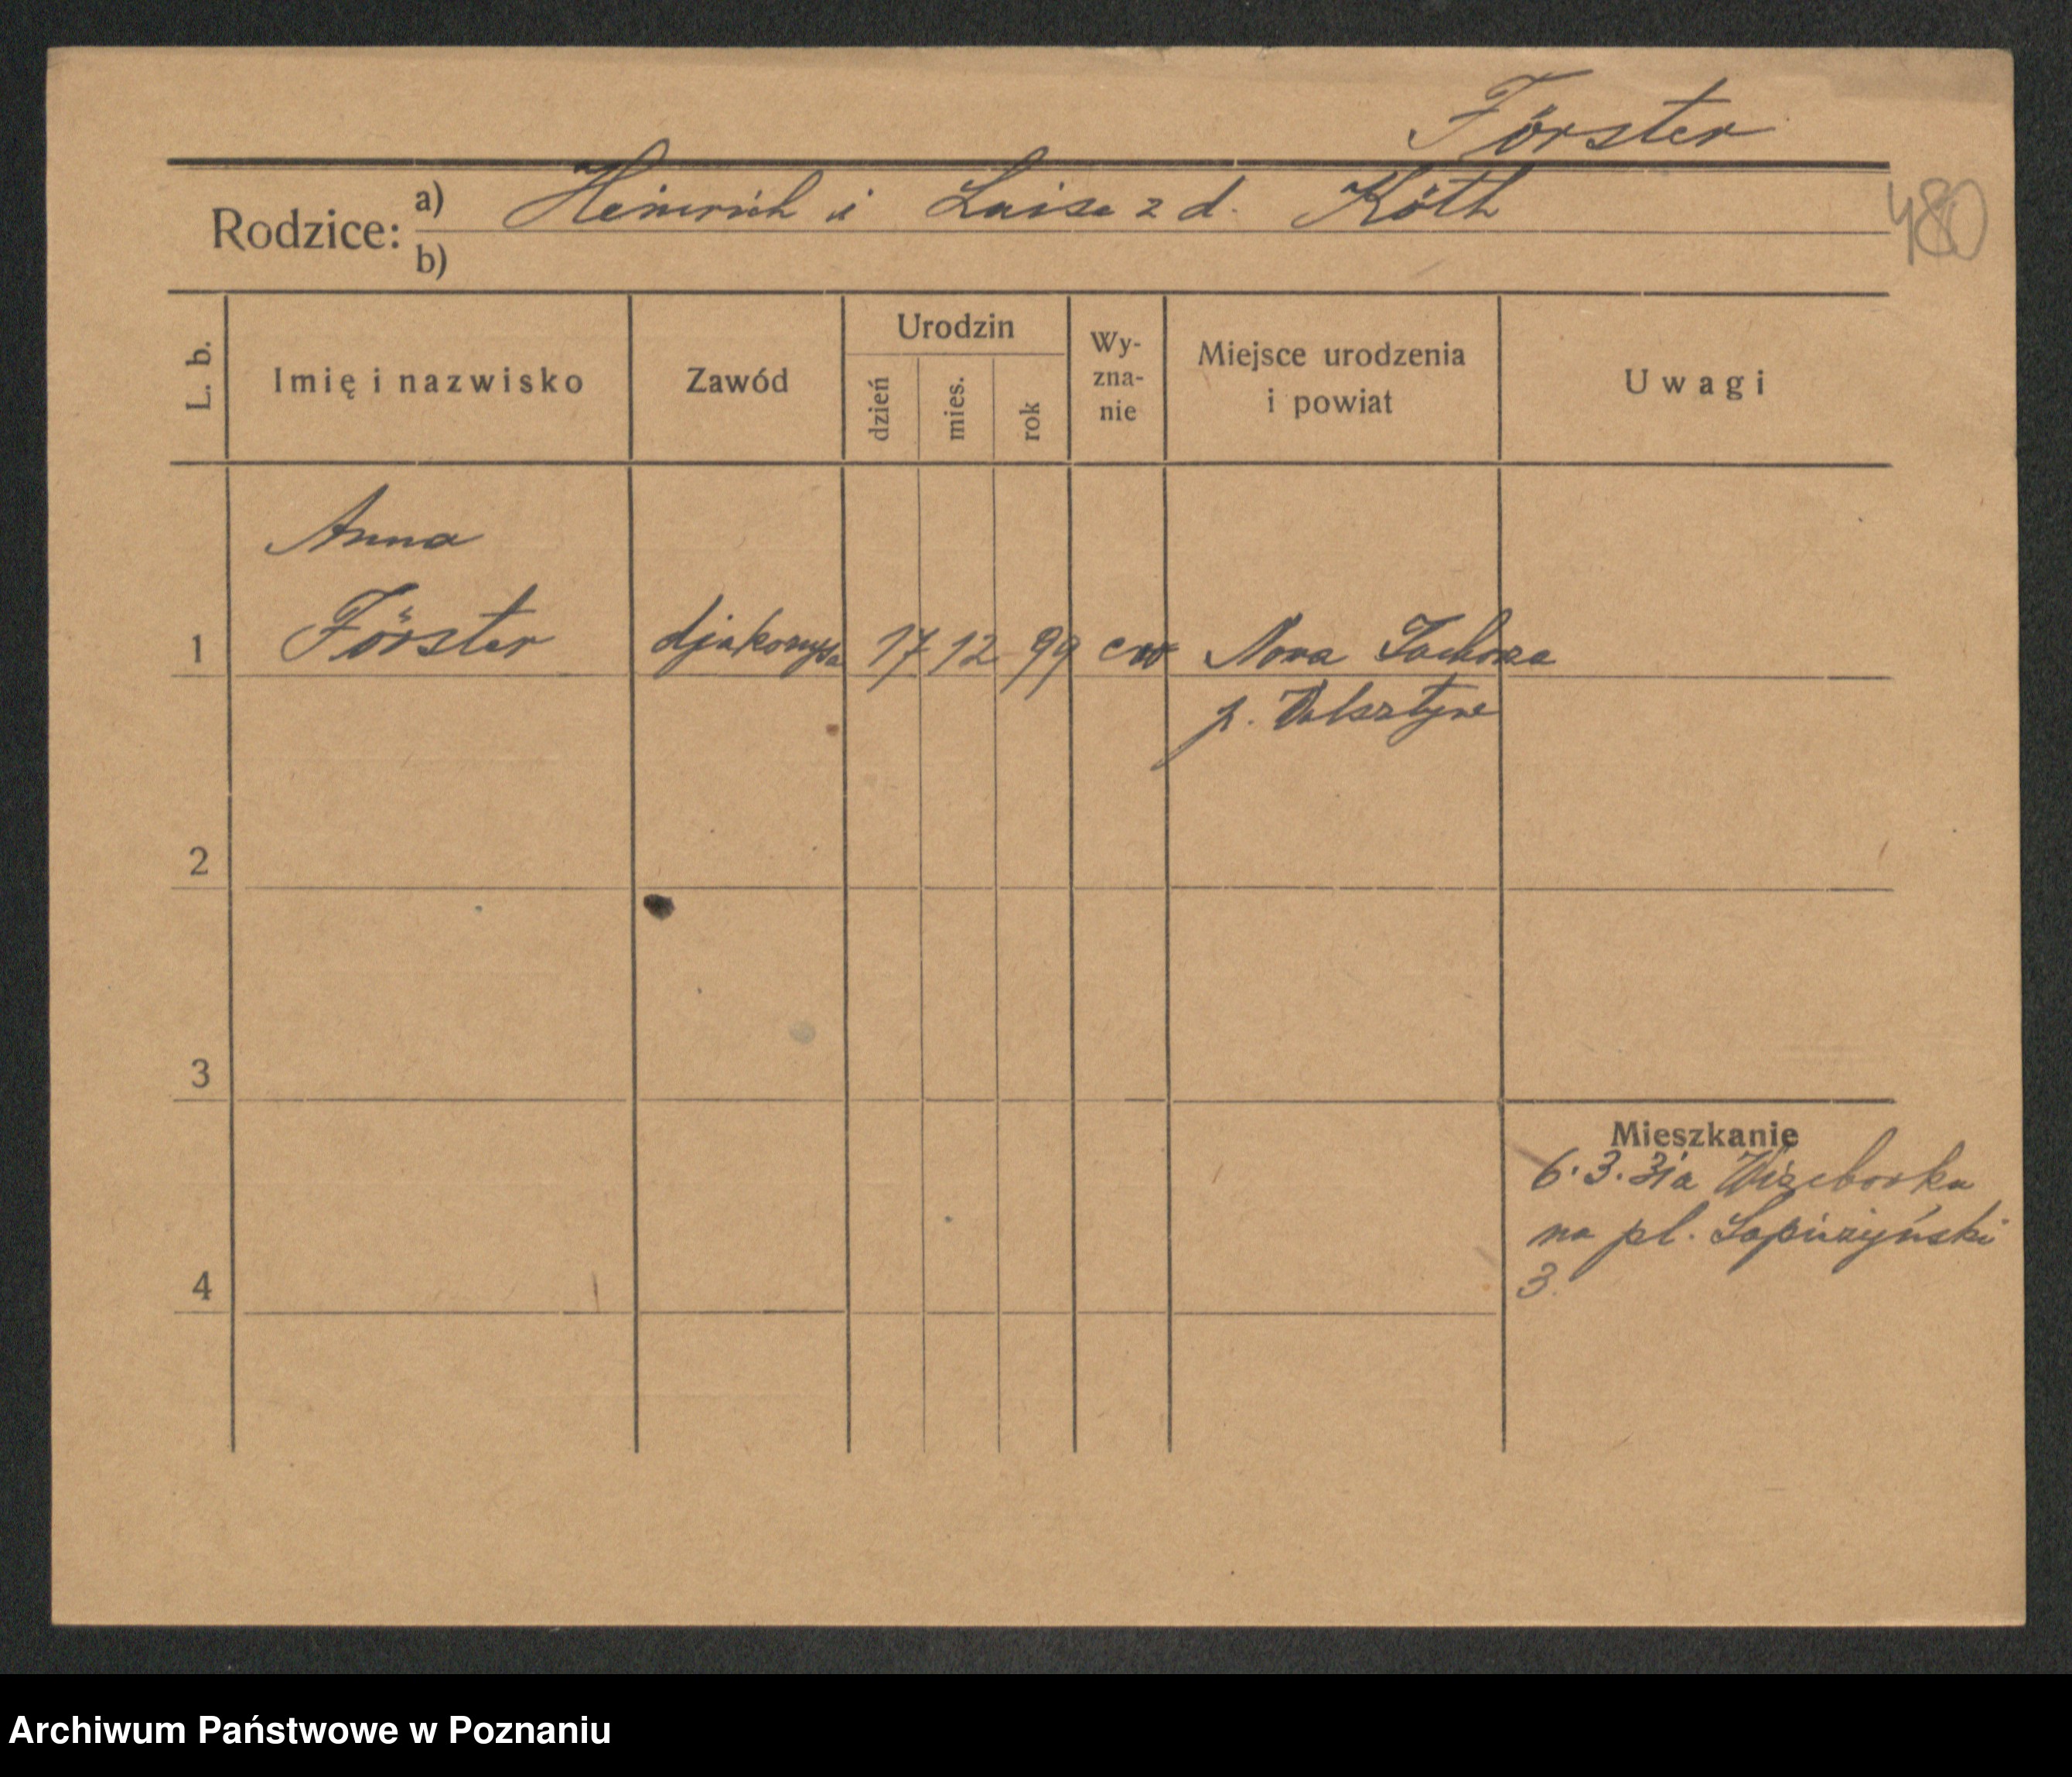 Förster
Rodzice: a) Heinrich i Luise z d. Köth
480
b)
L. b.
Imię i nazwisko
Zawód
Urodzin
dzień
mies.
rok
Wy-
zna-
nie
Miejsce urodzenia
i powiat
Uwagi
Anna
1 Förster djakonysa 17 12 99 ew Nowa
p. Wolsztyn
2
3
Mieszkanie
6. 3. 31 z
na pl. Sapieżyński
4
3.
Archiwum Państwowe w Poznaniu